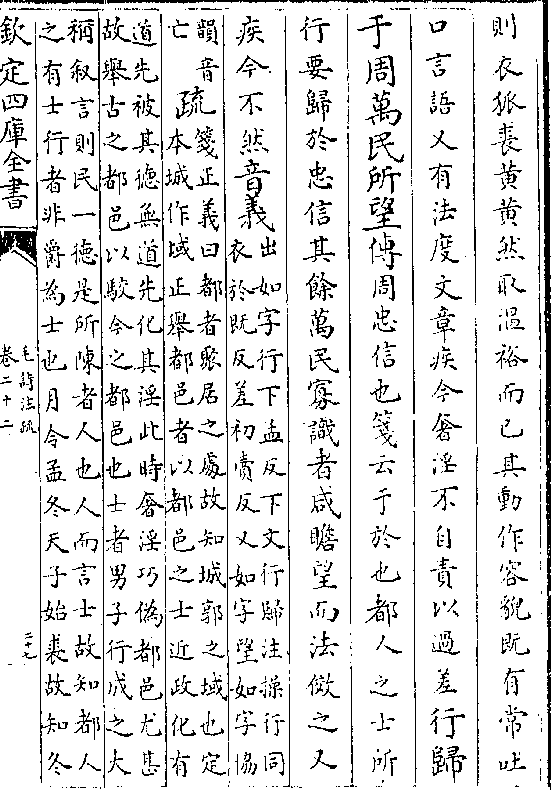 則衣狐裘黄黄然取温裕而已其動作容貌既有常吐
口言語又有法度文章疾今奢淫不自責以過差行歸
于周萬民所望傳周忠信也箋云于於也都人之士所
行要歸於忠信其餘萬民寡識者咸瞻望而法傚之又
疾今不然音義
出如字行下孟反下文行歸注操行同
衣於既反差初賣反又如字望如字協
韻音
亡
疏
箋正義曰都者聚居之處故知城郭之域也定
本城作域正舉都邑者以都邑之士近政化有
道先被其德無道先化其淫此時奢淫巧偽都邑尤甚
故舉古之都邑以駮今之都邑也士者男子行成之大
稱叙言則民一德是所陳者人也人而言士故知都人
之有士行者非爵為士也月令孟冬天子始裘故知冬
欽定四庫全書
毛詩注疏
卷二十二
三十七